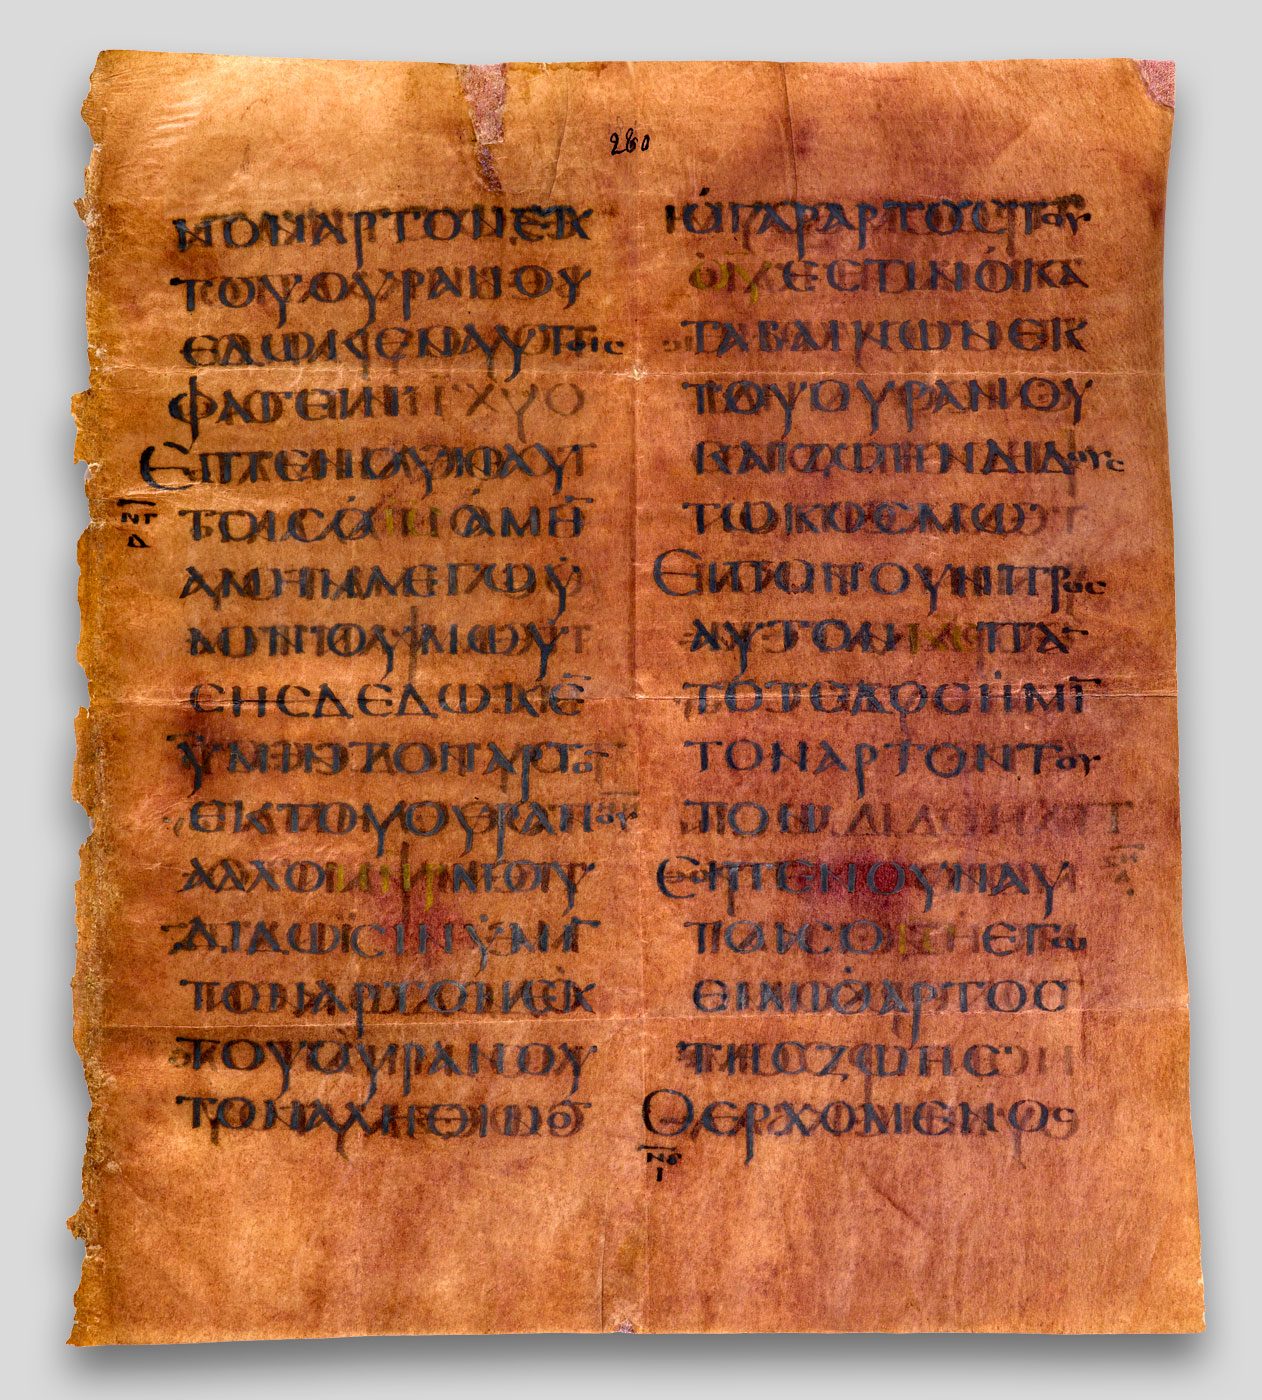 280
ΝΟΝΑΡΤΟΝΕΚ
ΤΟΥΟΥΡΑΝΟΥ
ΕΔΩΚΕΝΑΥΤΟΙϹ
ΦΑΓΕΙΝ
ΕΙΠΕΝΟΥΝΑΥ
ΝΓ
Δ
ΤΟΙϹΟΙ̅Ϲ̅ΑΜΗ̅
ΑΜΗΝΛΕΓΩΥ
ΜΙΝΟΥΜΩΥ
ϹΗϹΔΕΔΩΚΕ̅
ΥΜΙΝΤΟΝΑΡΤΟ̅
ΕΚΤΟΥΟΥΡΑΝΟΥ
ΑΛΛΟΠ̅Η̅Ρ̅ΜΟΥ
ΔΙΔΩϹΙΝΥΜΙ̅
ΤΟΝΑΡΤΟΝΕΚ
ΤΟΥΟΥΡΑΝΟΥ
ΤΟΝΑΛΗΘΙΝΟ̅
ΟΓΑΡΑΡΤΟϹΤΟΥ
Θ̅Υ̅ΕϹΤΙΝΟΚΑ
ΤΑΒΑΙΝΩΝΕΚ
ΤΟΥΟΥΡΑΝΟΥ
ΚΑΙΖΩΗΝΔΙΔΟΥϹ
ΤΩΚΟϹΜΩ
ΕΙΠΟΝΟΥΝΠΡΟϹ
ΑΥΤΟΝΚ̅Ε̅ΠΑ̅
ΤΟΤΕΔΟϹΗΜΙ̅
ΤΟΝΑΡΤΟΝΤΟΥ
ΤΟΝ
ΕΙΠΕΝΟΥΝΑΥ
ΤΟΙϹΟΙ̅Ϲ̅ΕΓΩ
ΕΙΜΙΟΑΡΤΟϹ
ΤΗϹΖΩΗϹ
ΟΕΡΧΟΜΕΝΟϹ
Ι